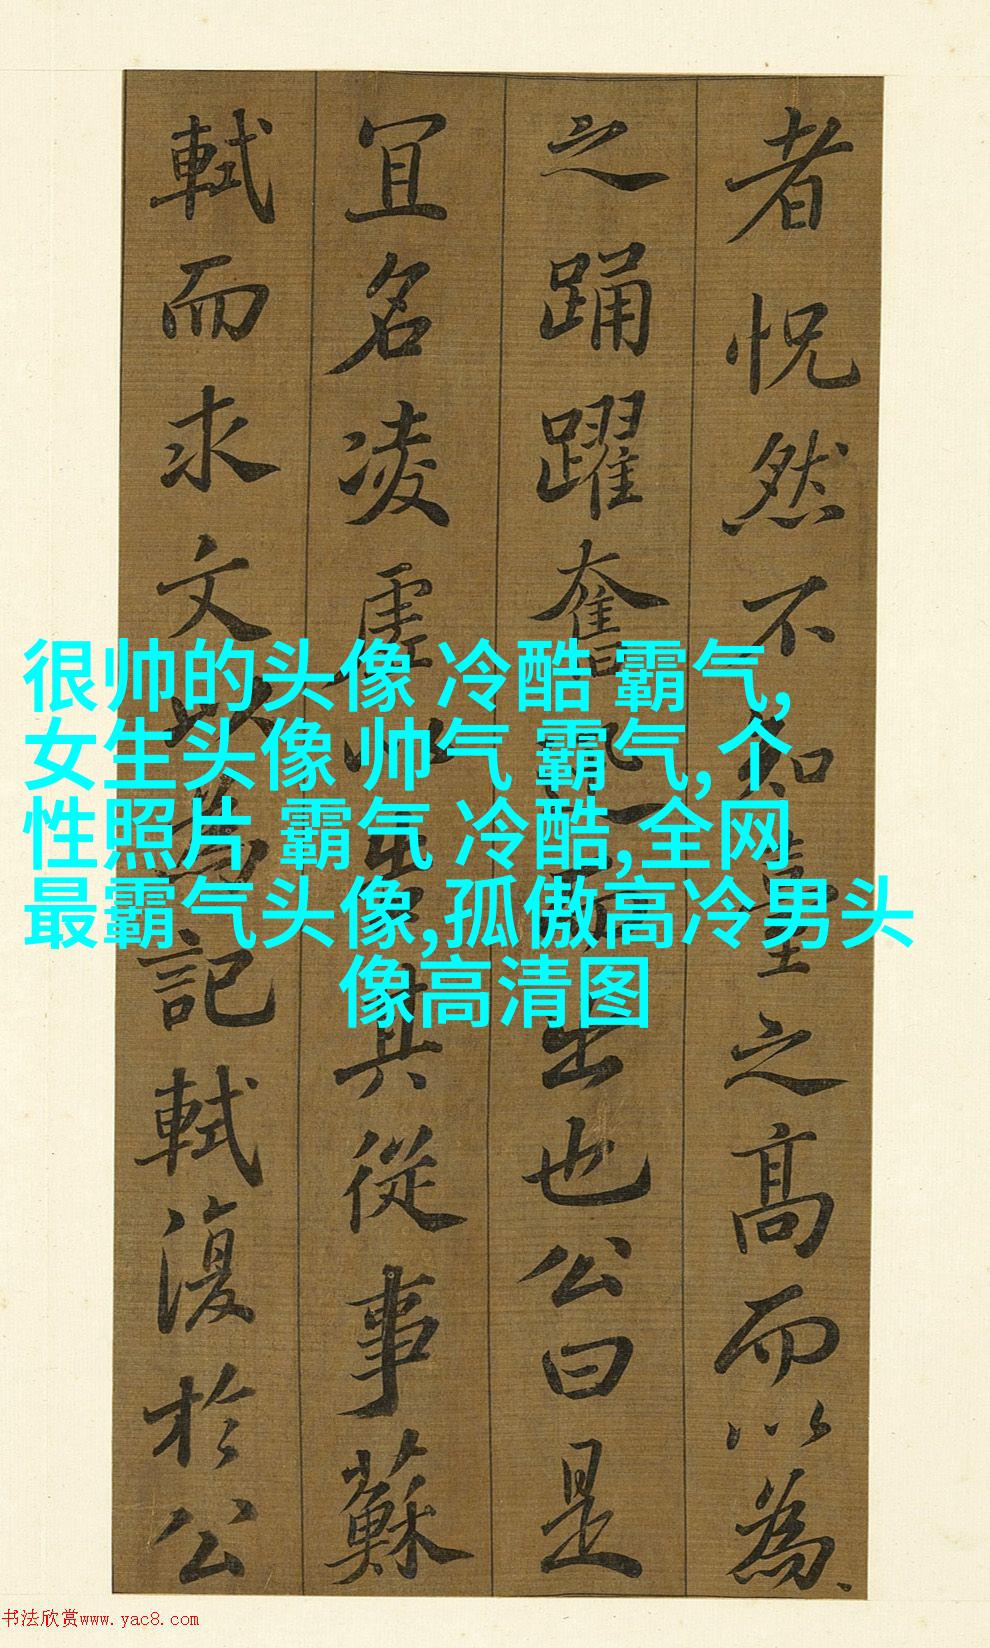 者怳然不知臺之高而以為
之踊躍奮迅而出也公曰是
冝名凌虛以告其從事蘇
軾而求文以為記軾復於公
很帅的头像 冷酷 霸气,
女生头像 帅气 霸气,个
性照片 霸气 冷酷,全网
最霸气头像,孤傲高冷男头
像高清图
书法欣赏www.yac8.com